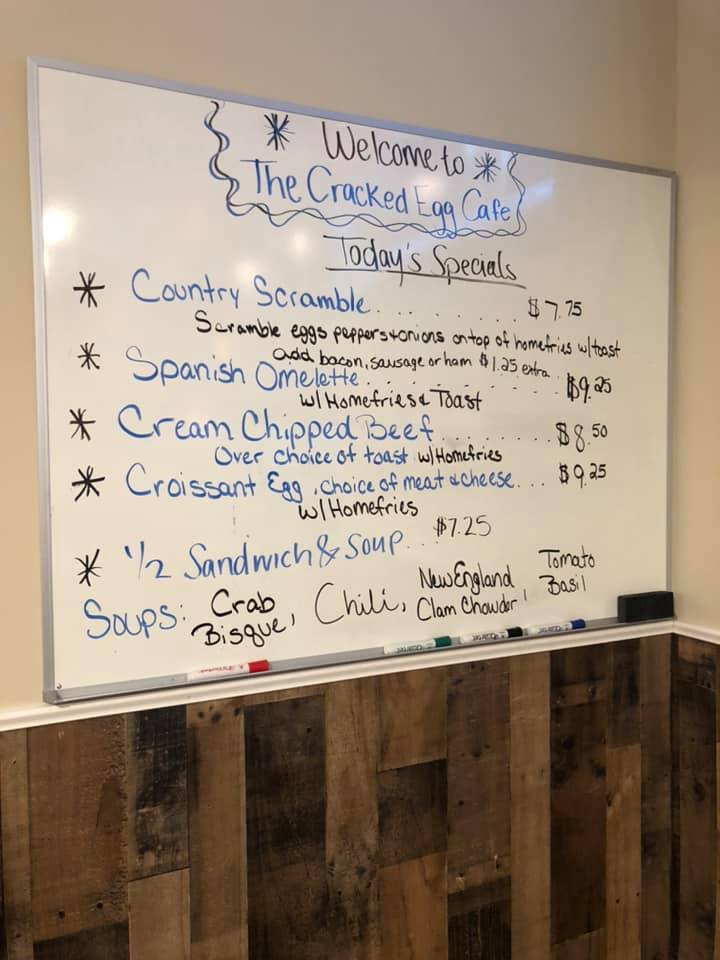 * Welcome to *
The Cracked Egg Cafe
Today's Specials
* Country Scramble . . . . . . . . . $7.75
Scramble eggs peppers & onions on top of homefries w/ toast
add bacon, sausage or ham $1.25 extra
* Spanish Omelette . . . . . . . . . . . $9.25
w/ Homefries & Toast
* Cream Chipped Beef . . . . . . . . . $8.50
Over choice of toast w/ Homefries
* Croissant Egg, choice of meat & cheese . . . $9.25
w/ Homefries
* 1/2 Sandwich & Soup . . . $7.25
Soups: Crab Bisque, Chili, New England Clam Chowder, Tomato Basil